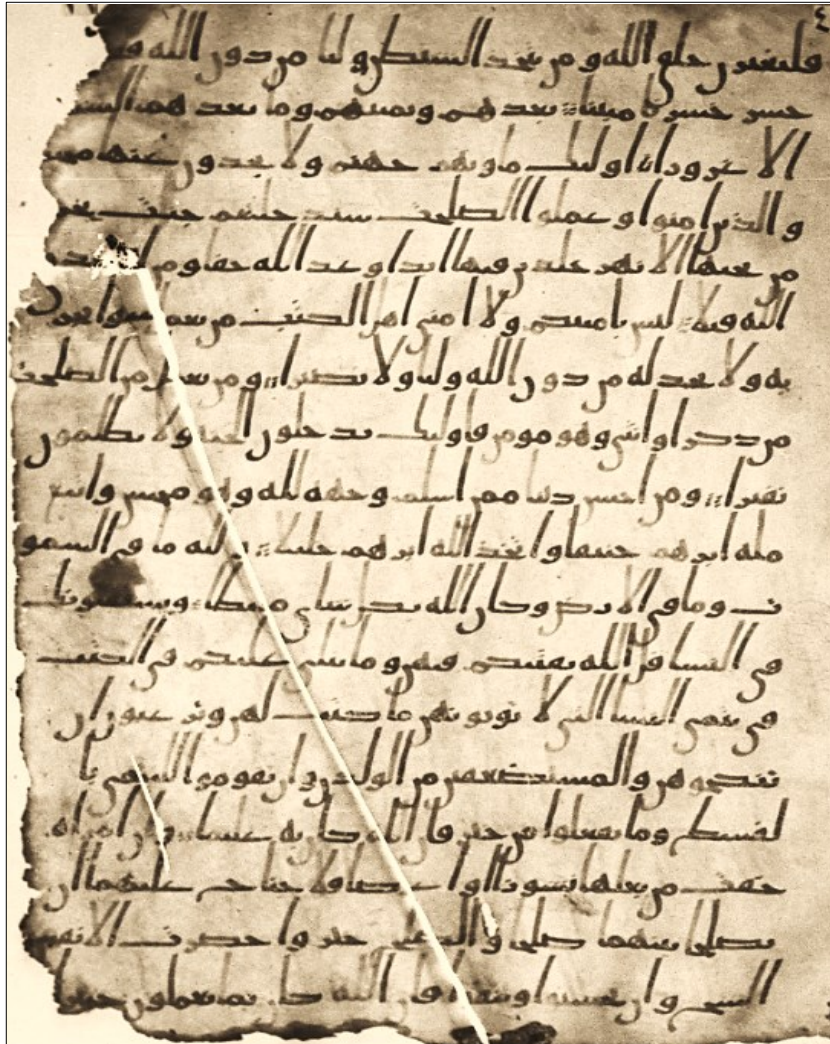 فليغيرن خلق الله ومن يتخذ الشيطن وليا من دون الله
خسر خسرنا مبينا يعدهم ويمنيهم وما يعدهم
الا غرورا اوليك ماويهم جهنم ولا يجدون عنها
والذين امنوا وعملوا الصلحت سندخلهم جنت
من تحتها الانهر خلدين فيها ابدا وعد الله حقا ومن
الله قيلا ليس بامنيكم ولا امني اهل الكتب من يعمل سوا يجز
به ولا يجد له من دون الله وليا ولا نصيرا ومن يعمل من الصلحت
من ذكر او انثى وهو مومن فاوليك يدخلون الجنه ولا يظلمون
نقيرا ومن احسن دينا ممن اسلم وجهه لله وهو محسن واتبع
مله ابرهيم حنيفا واتخذ الله ابرهيم خليلا ولله ما في السمو
ت وما في الارض وكان الله بكل شاي محيطا ويستفتونك
في النسا قل الله يفتيكم فيهن وما يتلى عليكم في الكتب
في يتمى النسا التي لا توتونهن ما كتب لهن وترغبون ان
تنكحوهن والمستضعفين من الولدن وان تقوموا لليتمى با
لقسط وما تفعلوا من خير فان الله كان به عليما وان امراه
خفت من بعلها نشوزا او اعرضا فلا جناح عليهما ان
يصلحا بينهما صلحا والصلح خير واحضرت الانفس
الشح وان تحسنوا وتتقوا فان الله كان بما تعملون خبيرا